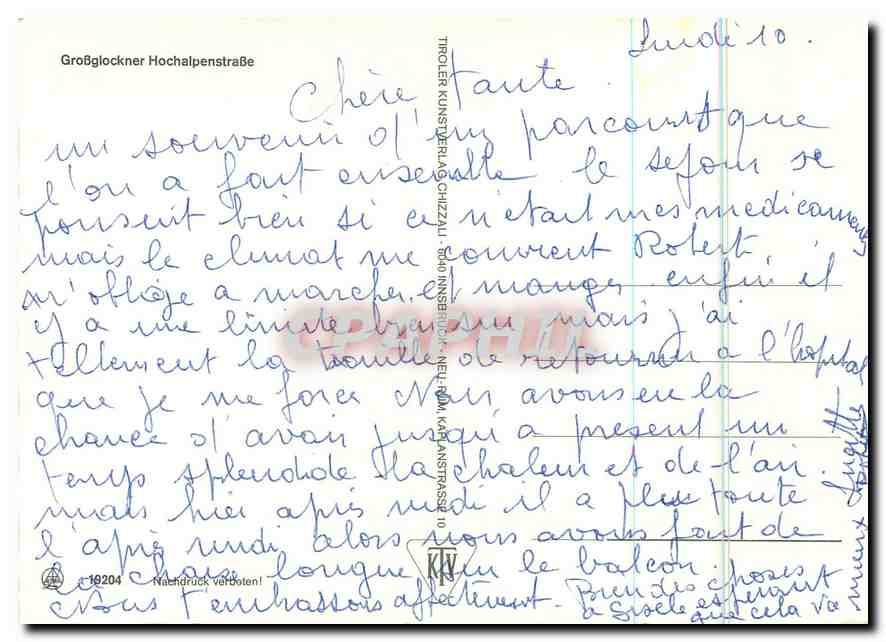 Großglockner Hochalpenstraße
TIROLER KUNSTVERLAG CHIZZALI · 6040 INNSBRUCK - NEU-RUM, KAPLANSTRASSE 10
Lundi 10.
Chère tante
un souvenir d'un parcourst que
l'on a fait ensemble le sejour se
poursuit bien si ce n'etait mes medicaments
mais le climat me convient Robert
m'oblige a marcher et manger enfin il
y a une limite bien sur mais j'ai
tellement la trouille de retourner a l'hopital
que je me force Nous avons eu la
chance d'avoir jusqu'a present un
temps splendide la chaleur et de l'air.
mais hier après midi il a plu toute
l'après midi alors nous avons fait de
la chaise longue sur le balcon.
Nous t'embrassons affectément. Bien des choses
a Gisele esperant
que cela va
mieux
Robert
KTV
19204 Nachdruck verboten!
CPAPHIL